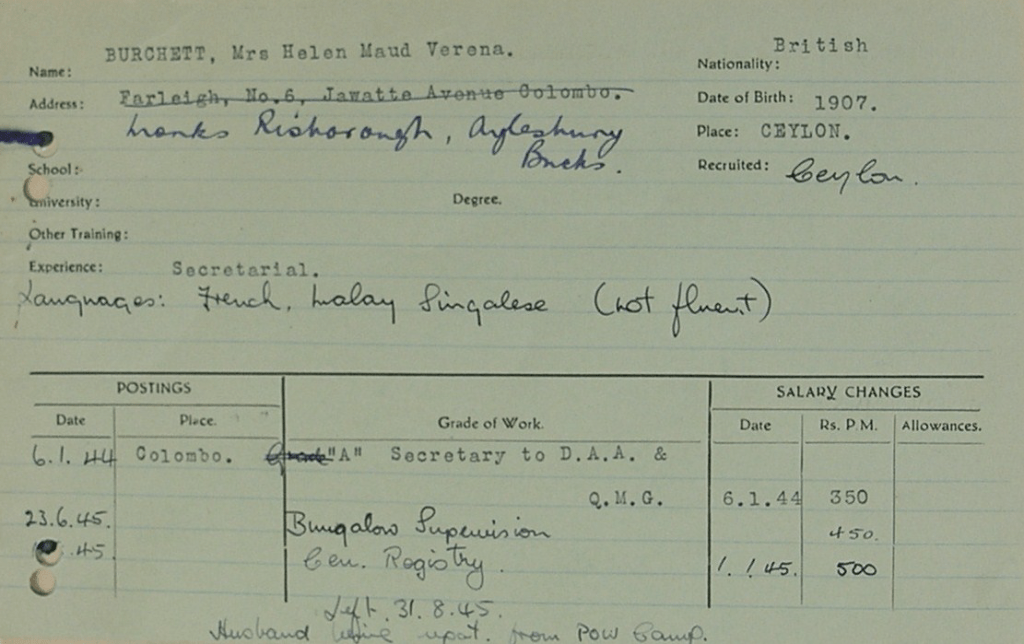 BURCHETT, Mrs Helen Maud Verena.
British
Name:
Nationality:
Address: Farleigh, No.6, Jawatte Avenue Colombo.
Date of Birth: 1907.
Monks Risborough, Aylesbury
Bucks.
Place: CEYLON.
School:
Recruited: Ceylon.
University:
Degree.
Other Training:
Experience: Secretarial.
Languages: French, Malay Singalese (not fluent)
POSTINGS
SALARY CHANGES
Date Place. Grade of Work. Date Rs. P.M. Allowances.
6.1.44 Colombo. Grade "A" Secretary to D.A.A. &
Q.M.G. 6.1.44 350
23.6.45. Bungalow Supervision 450.
.45. Gen. Registry. 1.1.45. 500
Left. 31.8.45.
Husband being repat. from POW Camp.